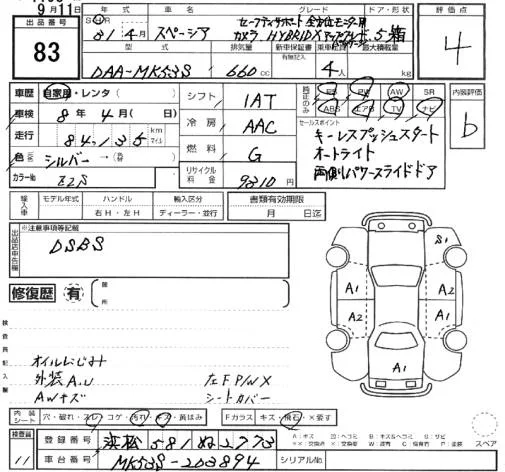 9月11日
出品番号
83
年式
31年4月
車名
スペーシア
グレード
セーフティサポート 全方位モニター用
カメラ HYBRIDX アップグレードパッケージ
ドア・形状
5 箱
評価点
4
型式
DAA-MK53S
排気量
660cc
新車保証書
有無記入
乗車定員
4人
最大積載量
kg
車歴
自家用・レンタ( )
車検
8年4月( 日)
走行
84,135
km
マイル
色
シルバー→
カラーNo
ZZS
シフト
1AT
冷房
AAC
燃料
G
リサイクル料金
9310円
純正のみ
PS PW AW SR
ABS エアB TV ナビ
内装評価
b
セールスポイント
キーレスプッシュスタート
オートライト
両側パワースライドドア
輸入車
モデル年式
ハンドル
輸入区分
右H・左H
ディーラー・並行
書類有効期限
月 日迄
出品店申告欄
※注意事項等記載
DSBS
修復歴
有
箇所
検査員記入欄
オイルにじみ
外装A.U
AWキズ
左FP/WX
シートカバー
S1
A1
A2
A1
A2
A1
内装シート
穴・破れ・スレ・コゲ・汚れ・キズ・黄ばみ
Fガラス
キズ・飛石・×要す
検査員
11
登録番号
浜松 581 ぬ 2773
車台番号
MK53S-203894
シリアルNo.
スペア